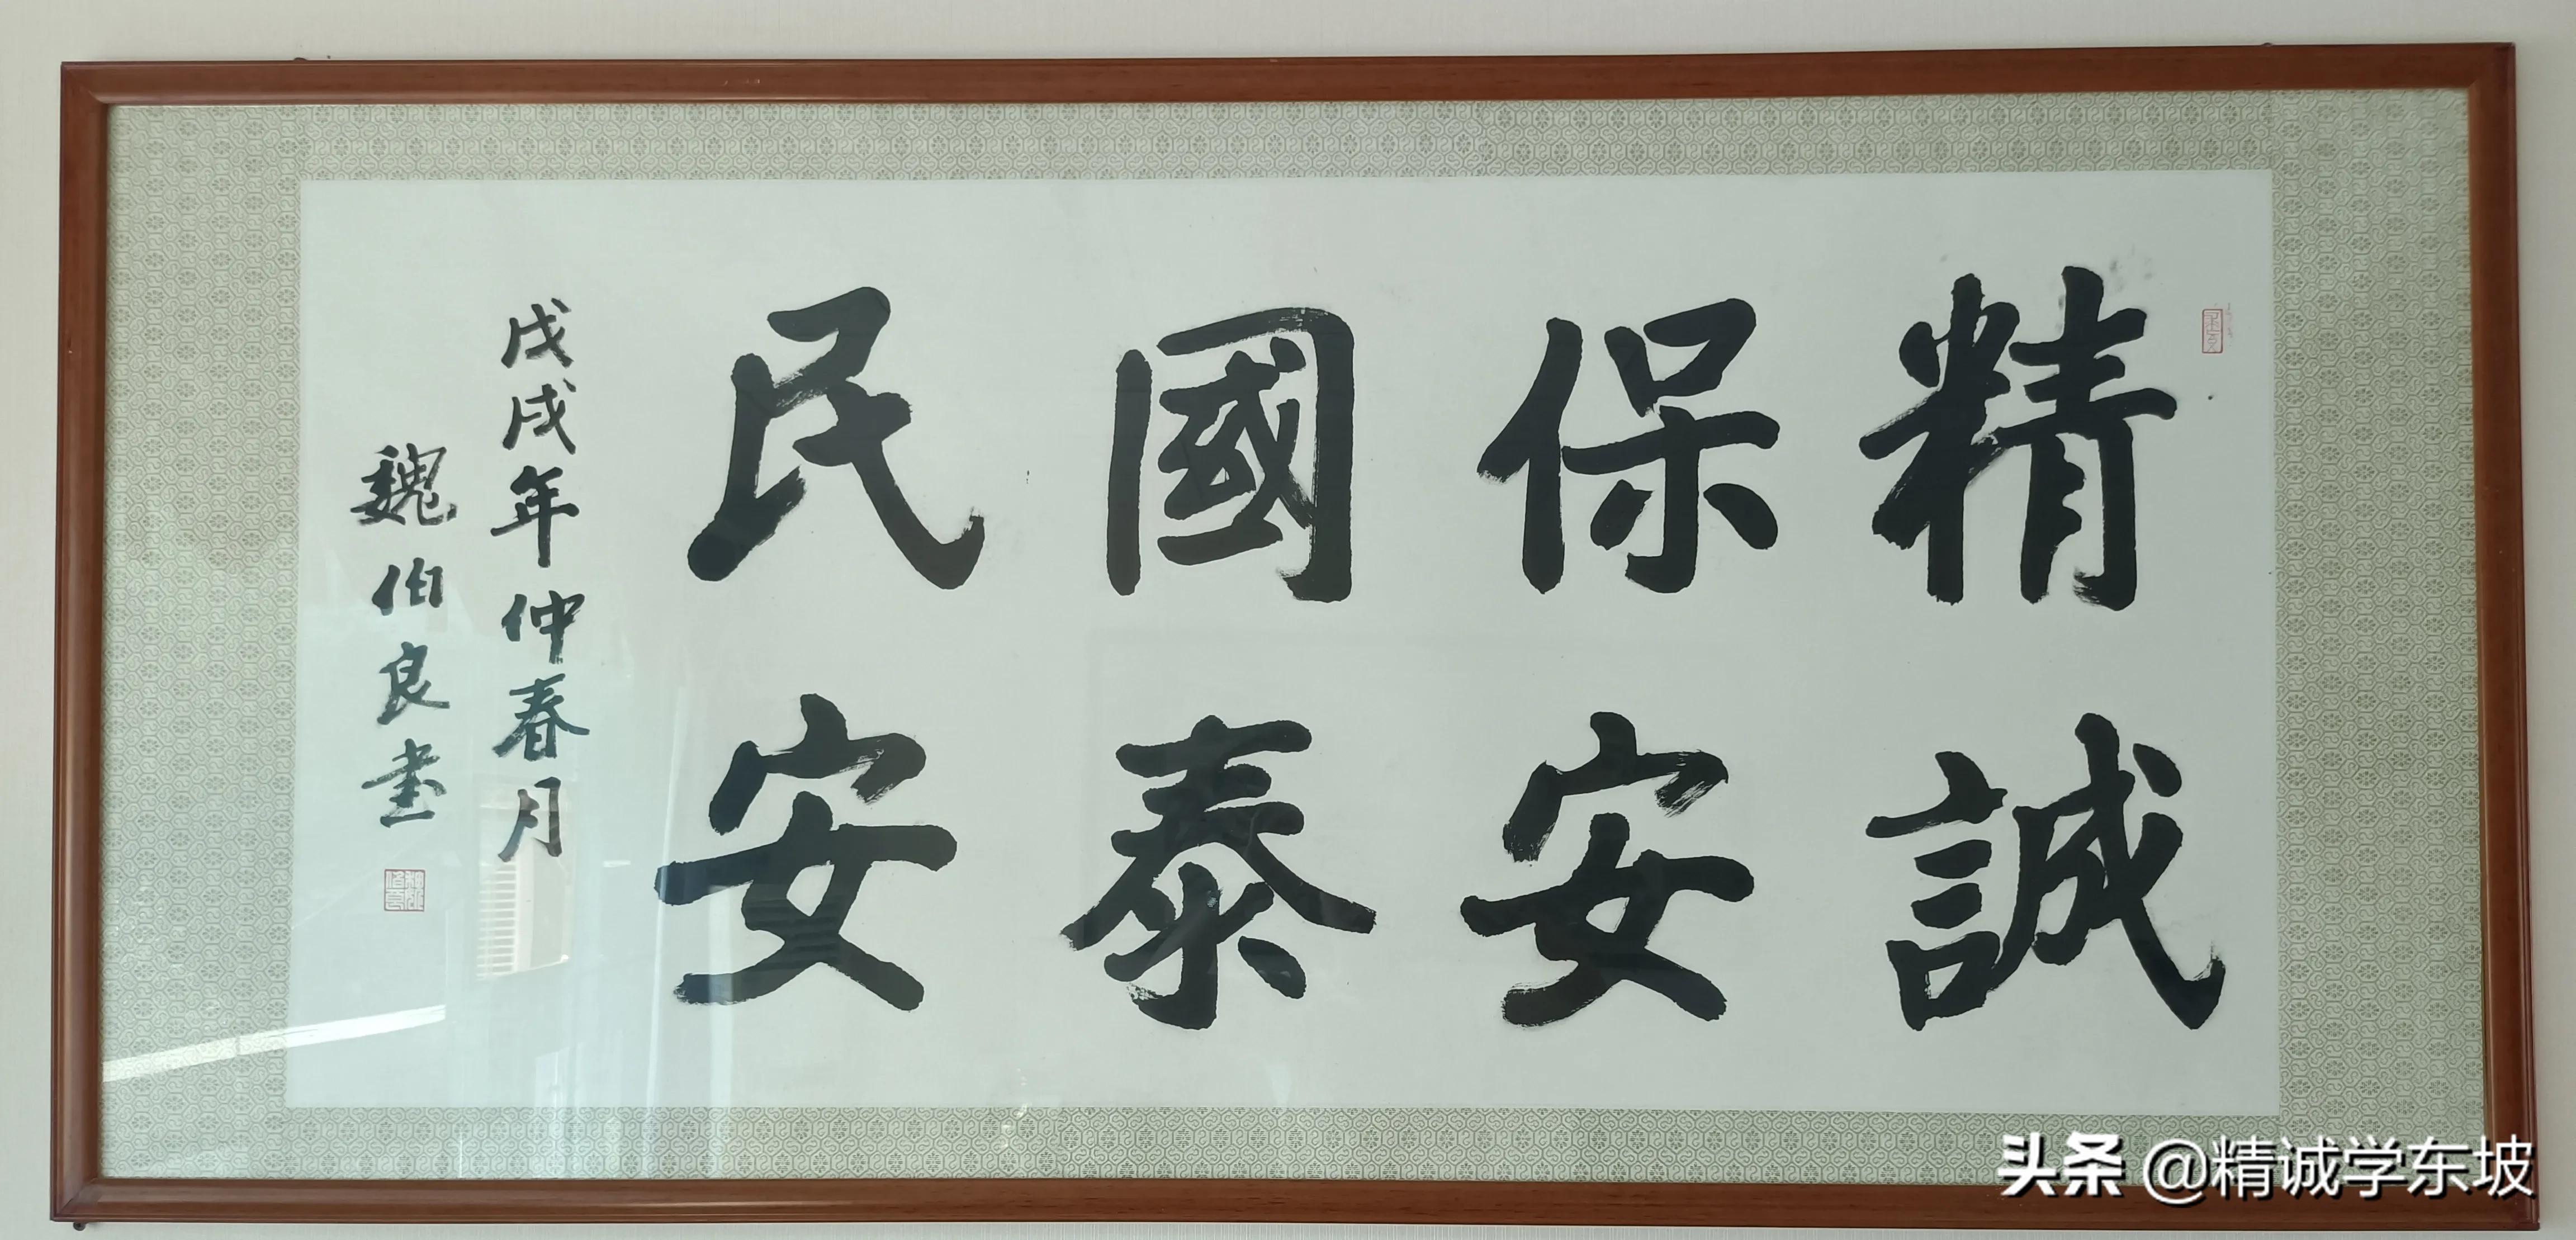 精誠
保安
國泰
民安
戊戌年仲春月
魏伯良書
头条 @精诚学东坡